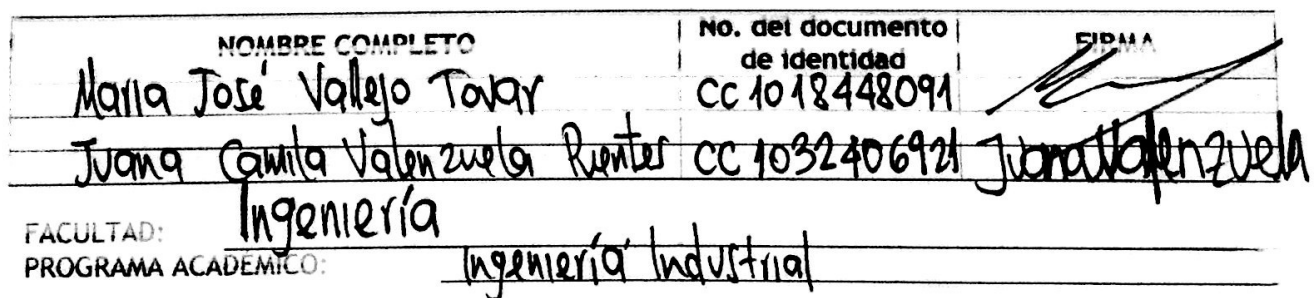 NOMBRE COMPLETO No. del documento de identidad FIRMA
Maria José Vallejo Tovar CC 1018448091
Juana Camila Valenzuela Puentes CC 1032406921 Juana Valenzuela
FACULTAD: Ingeniería
PROGRAMA ACADÉMICO: Ingeniería Industrial